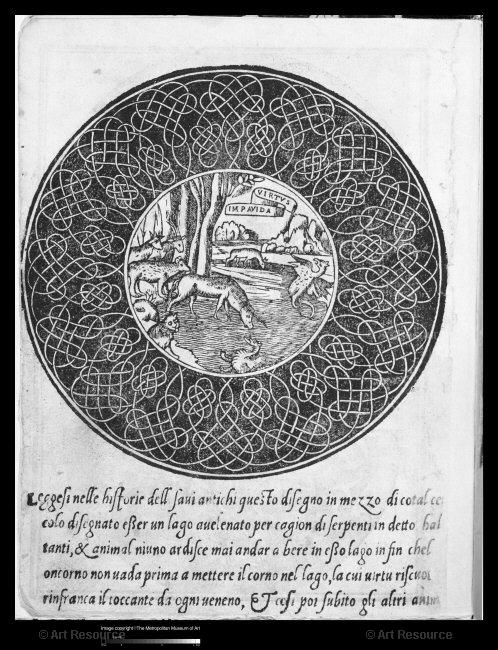 VIRTVS
IMPAVIDA
Leggesi nelle historie dell savi antichi questo disegno in mezzo di cotal
colo disegnato esser un lago avelenato per cagion di serpenti in detto
tanti, & animal niuno ardisce mai andar a bere in esso lago in fin chel
oncorno non vada prima a mettere il corno nel lago, la cui virtu
rinfranca il toccante da ogni veneno, Et cosi poi subito gli altri
Image copyright ©The Metropolitan Museum of Art
© Art Resource
© Art Resource